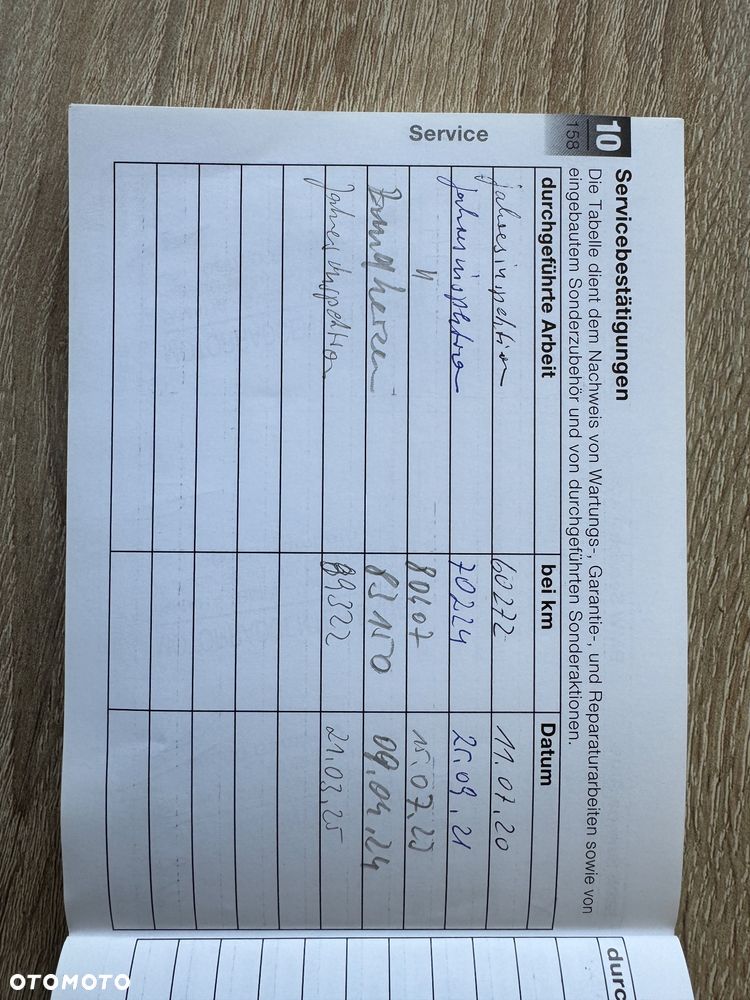 10
158
Service
Servicebestätigungen
Die Tabelle dient dem Nachweis von Wartungs-, Garantie-, und Reparaturarbeiten sowie von
eingebautem Sonderzubehör und von durchgeführten Sonderaktionen.
durchgeführte Arbeit bei km Datum
Jahresinspektion 60272 11.07.20
Jahresinspektion 70224 25.09.21
" 80407 15.07.23
83150 09.04.24
Jahresinspektion 89322 21.03.25
durc
OTOMOTO